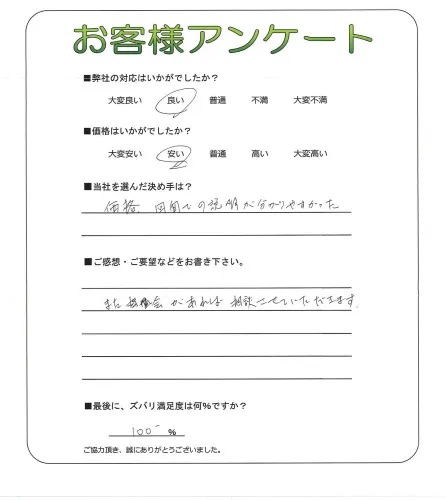 お客様アンケート
■弊社の対応はいかがでしたか？
大変良い 良い 普通 不満 大変不満
■価格はいかがでしたか？
大変安い 安い 普通 高い 大変高い
■当社を選んだ決め手は？
価格 図面での説明が分かりやすかった
■ご感想・ご要望などをお書き下さい。
また機会があれば相談させていただきます。
■最後に、ズバリ満足度は何%ですか？
100 %
ご協力頂き、誠にありがとうございました。